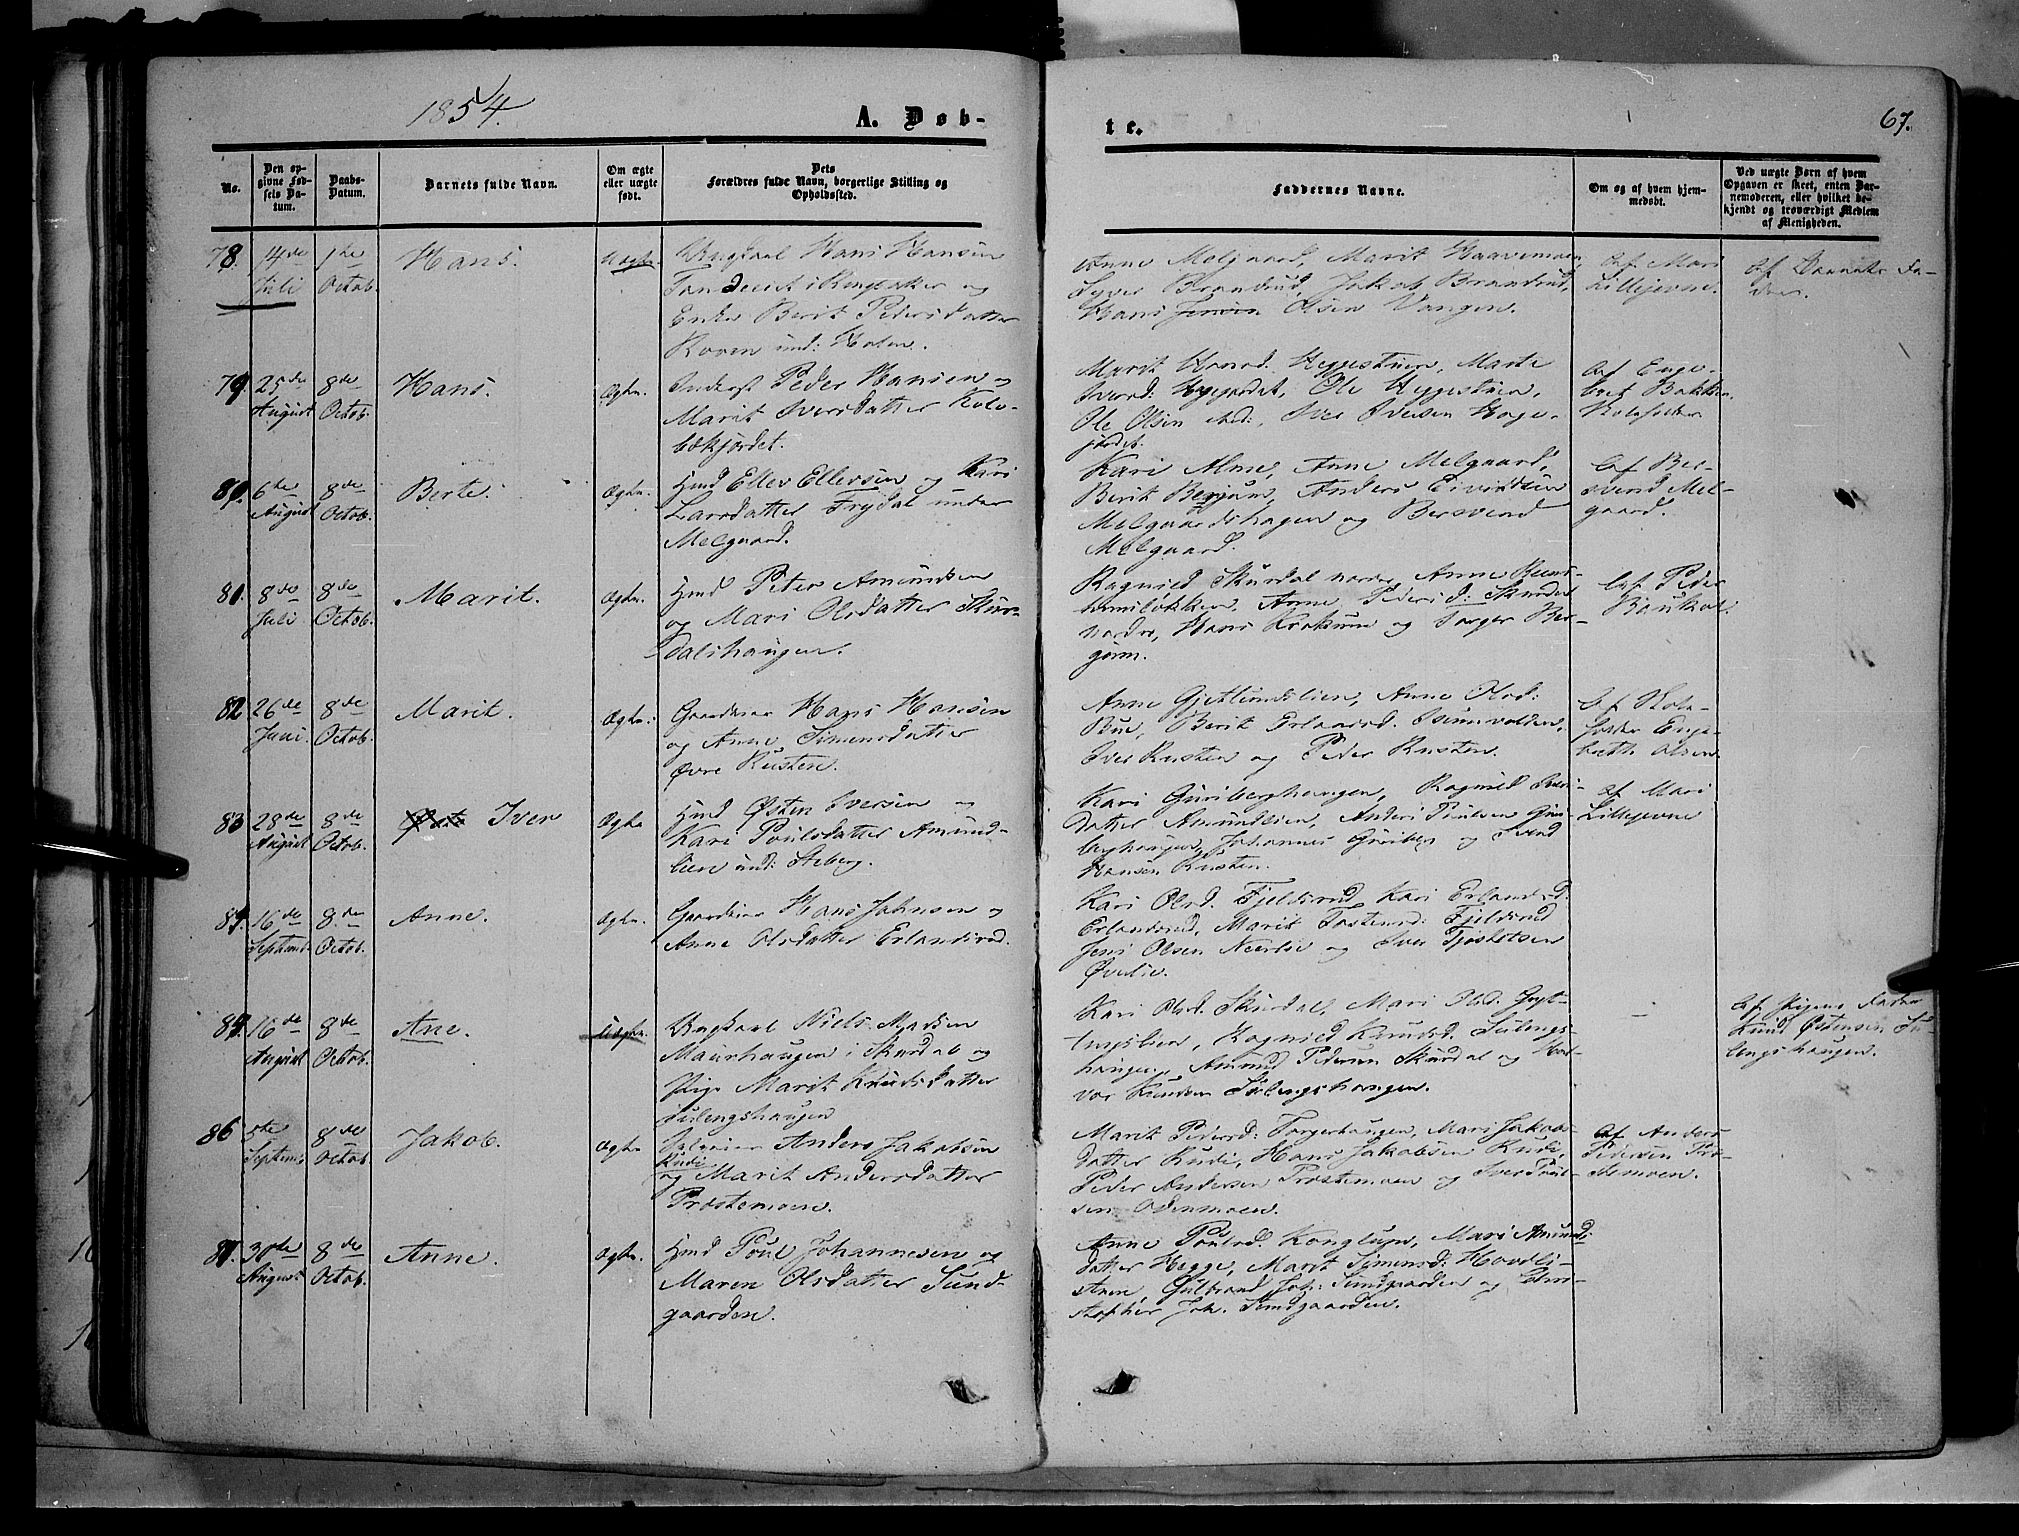 1854.
A. Døb-
te.
67.
No.
Den op-
givne Fød-
sels Da-
tum.
Daabs-
Datum.
Barnets fulde Navn.
Om ægte
eller uægte
født.
Dets
Forældres fulde Navn, borgerlige Stilling og
Opholdssted.
Faddernes Navne.
Om og af hvem hjem-
medøbt.
Ved uægte Børn af hvem
Opgaven er skeet, enten Bar-
nemoderen, eller hvilket be-
kjendt og troværdigt Medlem
af Menigheden.
78. 14de Juli
1ste Octob.
Hans.
Uægte.
Ungkarl Hans Hansen
i Ringsaker og
Enke Berit Pedersdatter
und: Holen.
Anne Melgaard, Marit
Syver Brandrud, Jakob Brandrud,
Hans Olsen Vangen.
Af Mari
Lillejevne.
Af Barnets Fa-
der.
79. 25de August
8de Octob.
Hans.
Ægte.
Inderst Peder Hansen og
Marit Iversdatter Kolo-
bækjordet.
Marit Heggestuen, Marte
Iversd: Ole Heggestuen,
Ole Olsen ibid:, Iver Iversen Hage-
jordet.
Af Enge-
bret Bakken
80. 6te August
8de Octob.
Berte.
Ægte.
Hmd Ellev Ellevsen og Kari
Larsdatter Frydal under
Melgaard.
Kari Alme, Anne Melgaard,
Berit Bergum, Anders Eivindsen
Melgaardshagen og Bersvend
Melgaard.
Af Ber-
svend Mel-
gaard.
81. 8de Juli
8de Octob.
Marit.
Ægte.
Hmd Peter Amundsen
og Mari Olsdatter Skur-
dalshaugen.
Ragnild Skurdal nordre, Anne
Anne Pedersd: Skurdal
nordre, Hans og Torger Ber-
gum.
Af Peder
82 26de Juni.
8de Octob.
Marit.
Ægte.
Gaardeier Hans Hansen
og Anne Simensdatter
Øvre Rusten.
Anne Gjetlundslien, Anne Olsd:
Bue, Berit Erlandsd.
Iver Rusten og Peder Rusten.
Af Skole-
holder Enge-
breth Olsen.
83 28de August
8de Octob.
Iver
Ægte
Hmd Østen Iversen og
Kari Poulsdatter Amund-
lien und: Steberg.
Kari Guribergshaugen, Ragnild Ivers-
datter Amundlien, Anders Poulsen Guri-
berghaugen, Johannes Guriberg og Svend
Hansen Rusten.
af Mari
Lillejevne
84. 16de Septemb.
8de Octob.
Anne.
Ægte.
Gaardeier Hans Johnsen og
Anne Olsdatter Erlandsrud.
Kari Olsd. Fjeldsrud, Kari Erlandsd.
Erlandsrud, Marit Tostensd: Fjeldsrud
Jens Olsen Neerlie og Iver Tjøstolsen
Øvrelie.
85. 16de August
8de Octob.
Ane.
Uægte.
Ungkarl Niels Madsen
Maurhaugen i Skurdal og
Pige Marit Knudsdatter
Sulengshaugen
Kari Olsd. Skurdal, Mari Olsd.
Ragnild Knudsd. Sulengs-
haugen, Amund Pedersen Skurdal og Hal-
vor Knudsen Sulengshaugen.
Af Pigens Fader
Knud Østensen Su-
lengshaugen.
86 5te Septemb.
8de Octob.
Jakob.
Ægte
Selveier Anders Jakobsen
Rudi
og Marit Andersdatter
Prostemoen.
Marit Pedersd: Torgerhaugen, Mari Jakobs-
datter Rudi, Hans Jakobsen Rudi,
Peder Andersen Prostemoen og Iver Poul-
sen Odenmoen.
Af Anders
Pedersen Pro-
stemoen.
87. 30te August
8de Octob.
Anne.
Ægte.
Hmd Poul Johannesen og
Maren Olsdatter Sund-
gaarden.
Anne Poulsd. Konglung, Mari Amunds-
datter Hegge, Marit Simensd: Hovdli-
stuen, Gulbrand Joh: Sundgaarden og Chri-
stopher Joh. Sundgaarden.